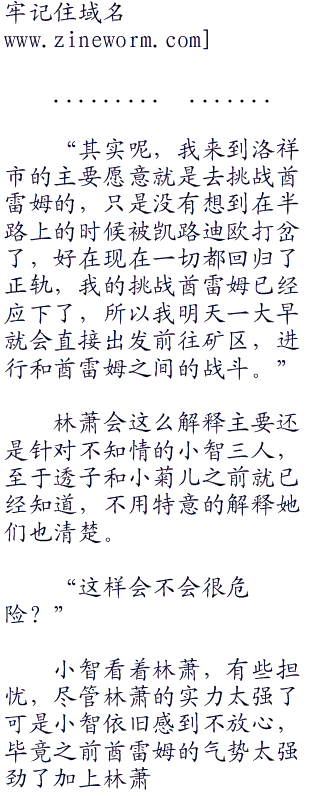 牢记住域名
www.zineworm.com]
......... .......
“其实呢，我来到洛祥
市的主要愿意就是去挑战酋
雷姆的，只是没有想到在半
路上的时候被凯路迪欧打岔
了，好在现在一切都回归了
正轨，我的挑战酋雷姆已经
应下了，所以我明天一大早
就会直接出发前往矿区，进
行和酋雷姆之间的战斗。”
林萧会这么解释主要还
是针对不知情的小智三人，
至于透子和小菊儿之前就已
经知道，不用特意的解释她
们也清楚。
“这样会不会很危
险？”
小智看着林萧，有些担
忧，尽管林萧的实力太强了
可是小智依旧感到不放心，
毕竟之前酋雷姆的气势太强
劲了加上林萧